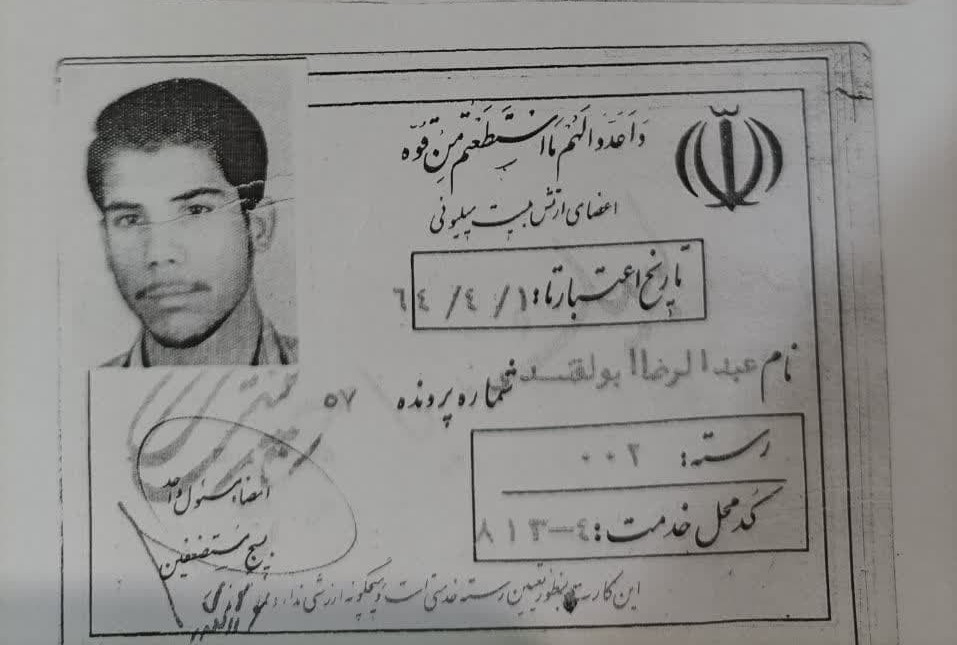 وَاَعِدّوا لَهُم مَا اسْتَطَعْتُم مِن قُوَّه
اعضای ارتش بیست میلیونی
تاریخ اعتبار تا: ۱/ ٤/ ٦٤
نام عبدالرضا ابولقسدی
شماره پرونده ۵۷
رسته: ۰۰۲
کد محل خدمت: ٤-۸۱۳
امضاء مسئول واحد
بسیج مستضعفین
این کارت بمنظور تعیین رسته خدمتی است و هیچگونه ارزشی ندارد